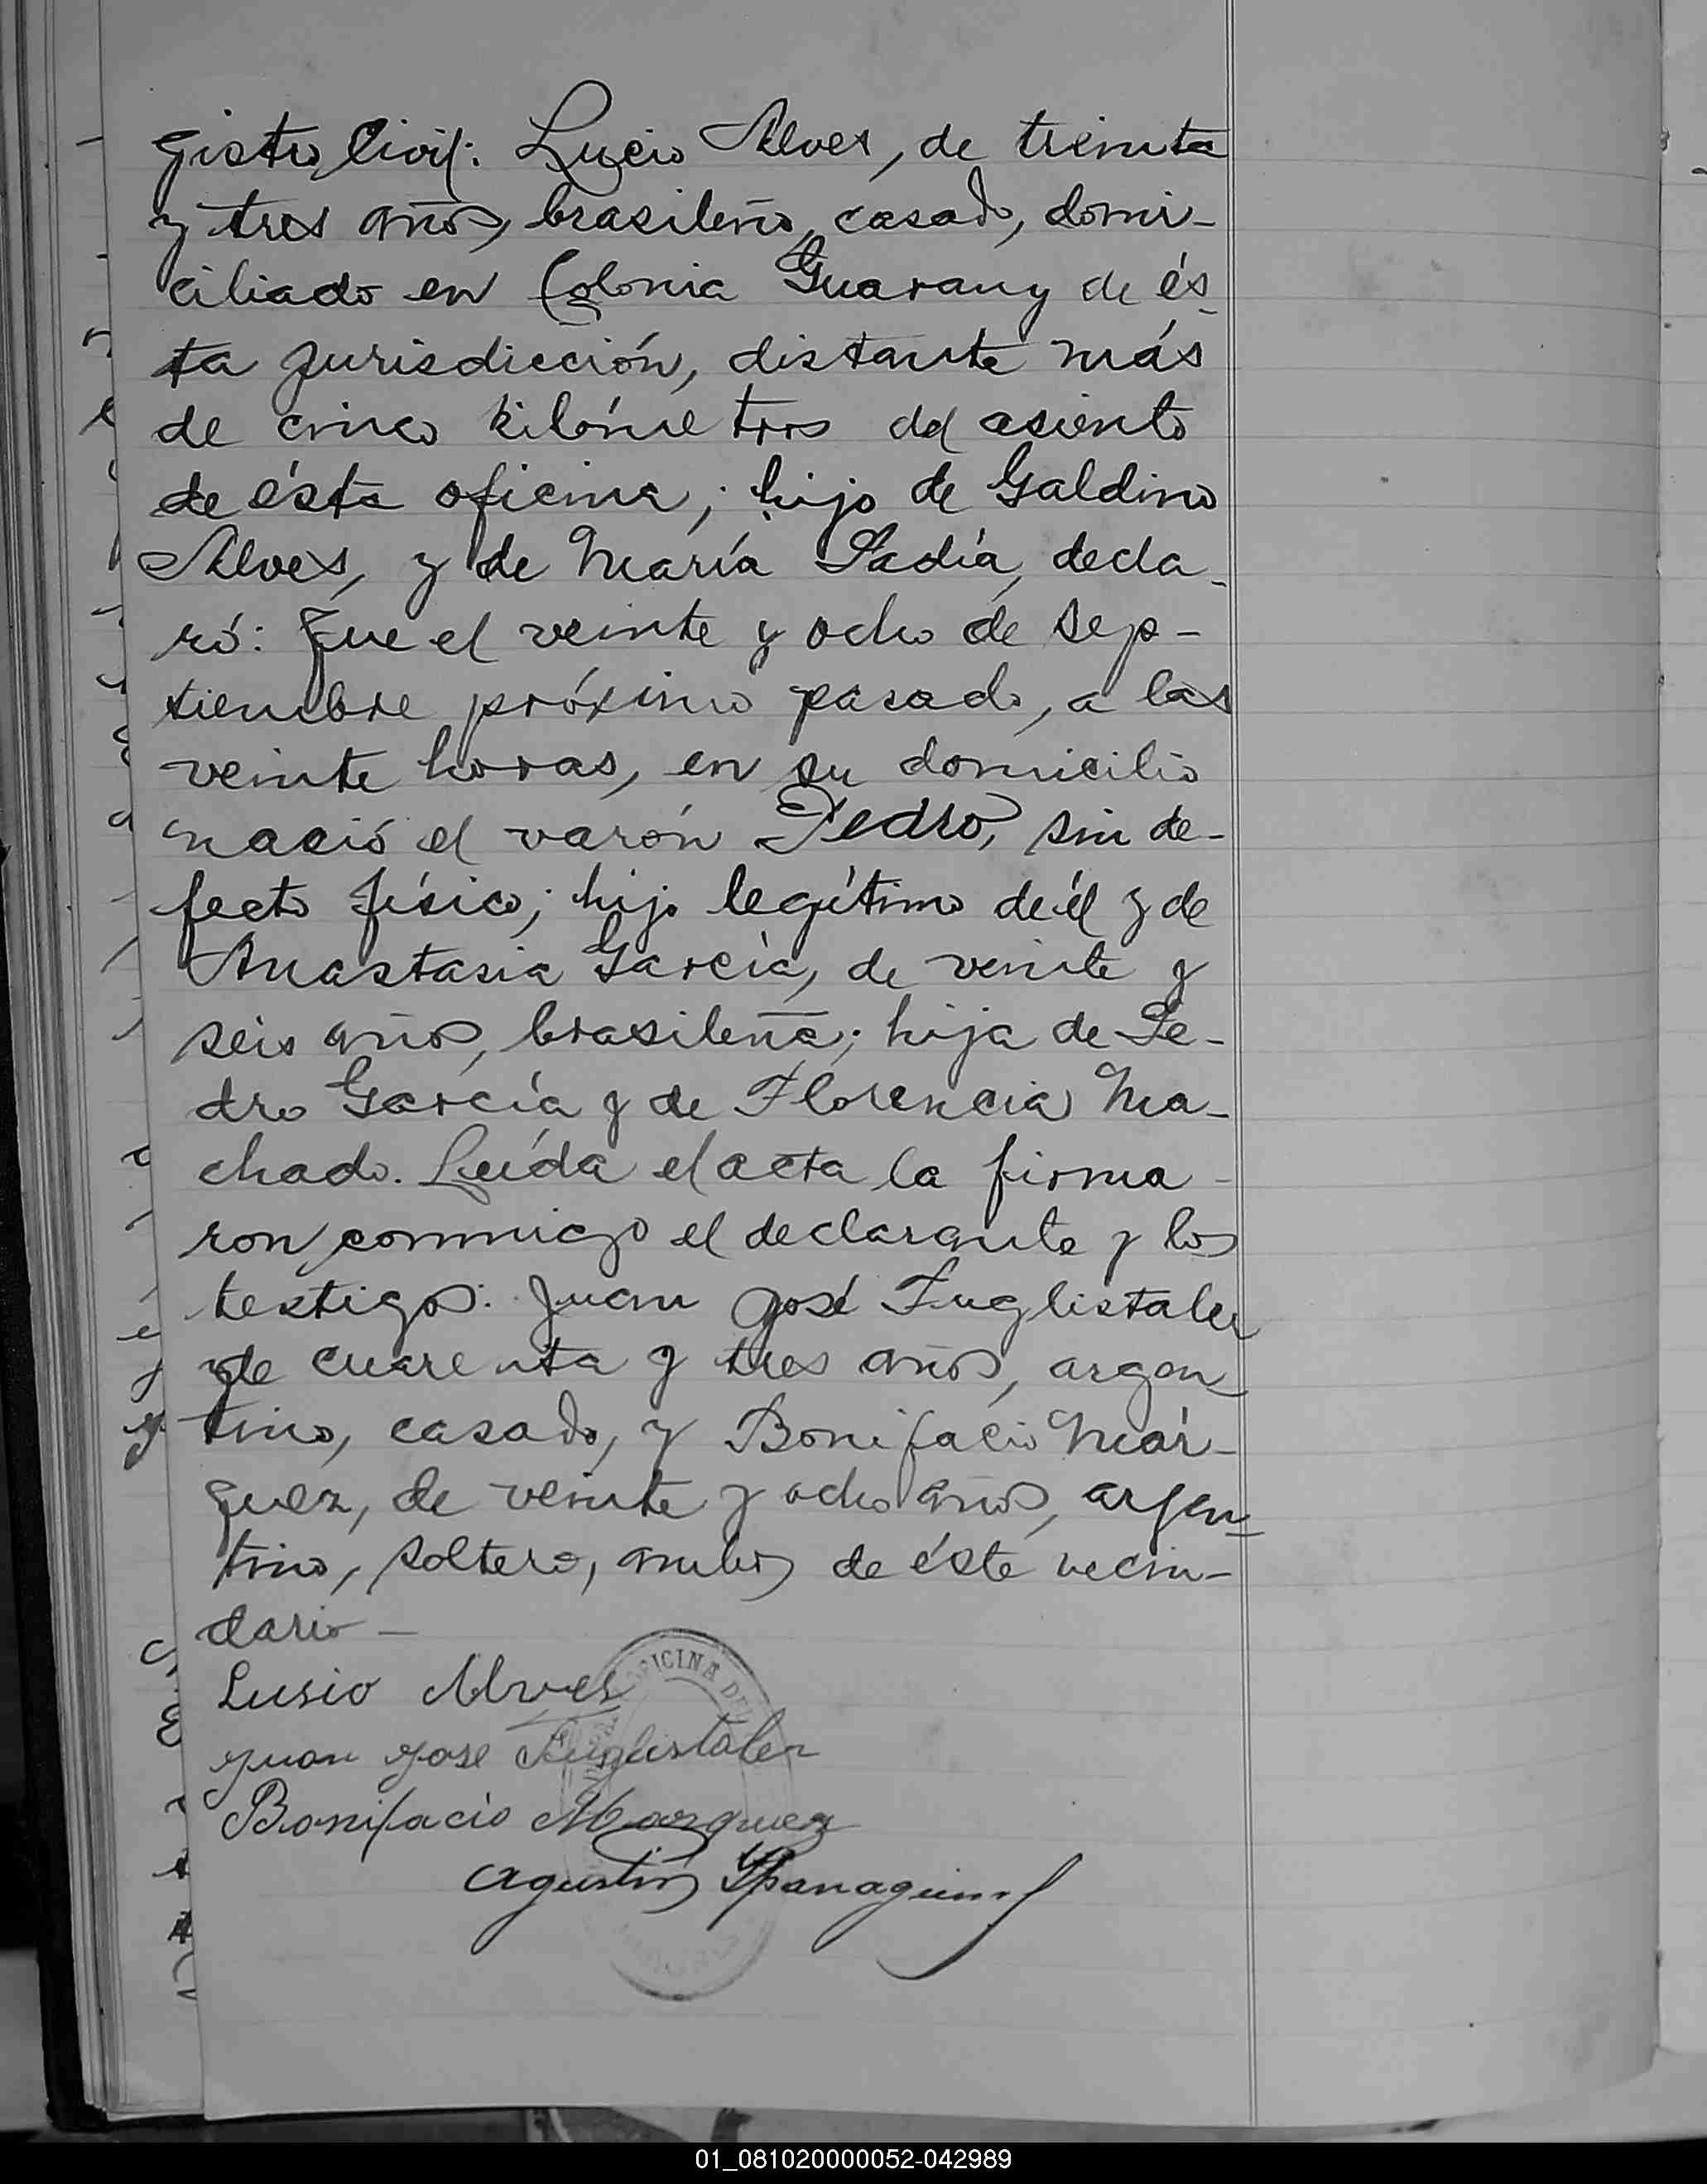 gistro Civil: Lucio Alves, de treinta
y tres años, brasileño, casado, domi-
ciliado en Colonia Guarany de és-
ta jurisdicción, distante más
de cinco kilómetros del asiento
de ésta oficina; hijo de Galdino
Alves, y de María Padía, decla-
ró: Que el veinte y ocho de sep-
tiembre próximo pasado, a las
veinte horas, en su domicilio
nació el varón Pedro, sin de-
fecto físico; hijo legítimo de él y de
Anastasia García, de veinte y
seis años, brasileña; hija de Pe-
dro García y de Florencia Ma-
chado. Leída el acta la firma-
ron conmigo el declarante y los
testigos: Juan José Fuglistaler
de cuarenta y tres años, argen
tino, casado, y Bonifacio Már-
quez, de veinte y ocho años, argen-
tino, soltero, ambos de éste vecin-
dario—
Lusio Alves
Juan Jose Fuglistaler
Bonifacio Marquez
Agustin
OFICINA DEL
01_081020000052-042989